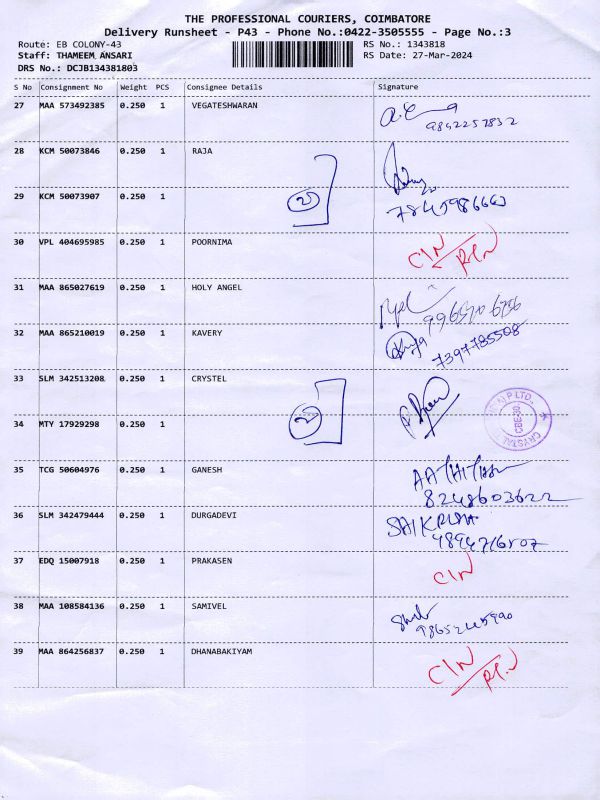 THE PROFESSIONAL COURIERS, COIMBATORE
Delivery Runsheet - P43 - Phone No.:0422-3505555 - Page No.:3
Route: EB COLONY-43 RS No.: 1343818
Staff: THAMEEM ANSARI RS Date: 27-Mar-2024
DRS No.: DCJB134381803
S No Consignment No Weight PCS Consignee Details Signature
27 MAA 573492385 0.250 1 VEGATESHWARAN
9842257832
28 KCM 50073846 0.250 1 RAJA
2
29 KCM 50073907 0.250 1
30 VPL 404695985 0.250 1 POORNIMA
CIN
31 MAA 865027619 0.250 1 HOLY ANGEL
32 MAA 865210019 0.250 1 KAVERY
7397785508
33 SLM 342513208 0.250 1 CRYSTEL
2
34 MTY 17929298 0.250 1
35 TCG 50604976 0.250 1 GANESH
8248603622
36 SLM 342479444 0.250 1 DURGADEVI
SAIKRISH
37 EDQ 15007918 0.250 1 PRAKASEN
CIN
38 MAA 108584136 0.250 1 SAMIVEL
39 MAA 864256837 0.250 1 DHANABAKIYAM
CIN